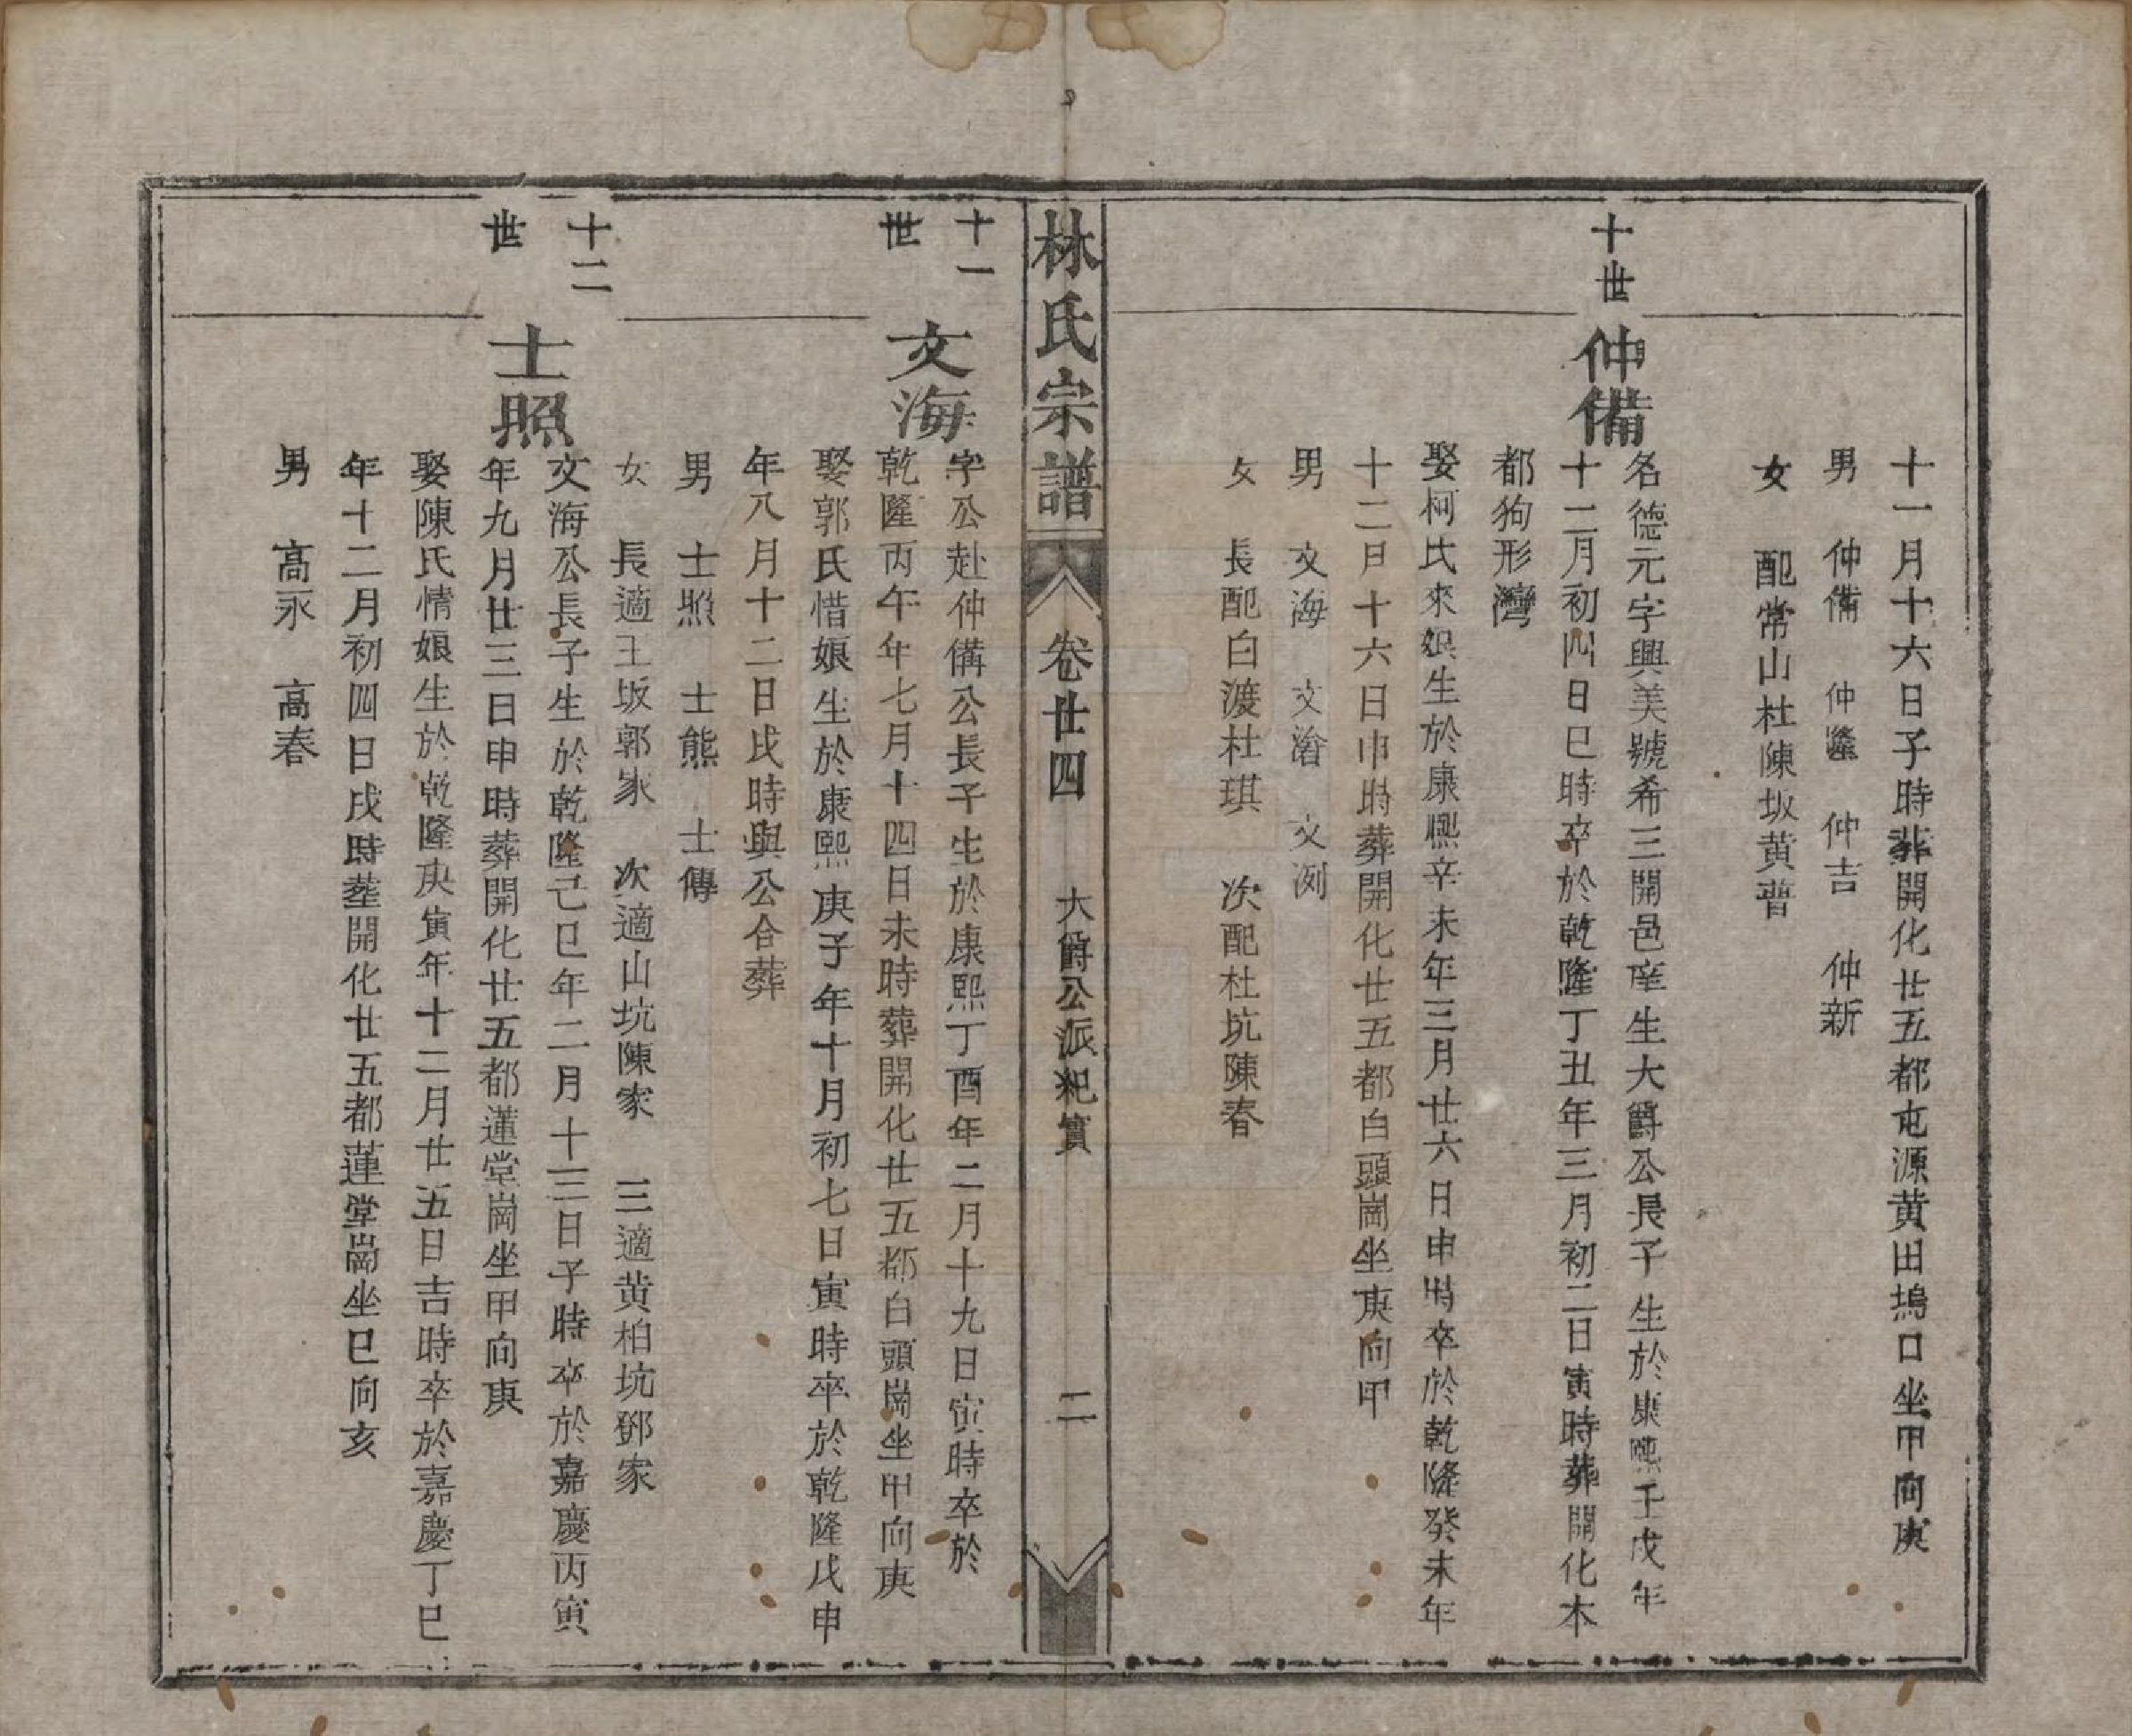 十一月十六日子時葬開化廿五都屯源黄田塢口坐甲向庚
男　仲備　仲隆　仲吉　仲新
女　配常山杜陳坂黄普
十世
仲備
名德元字興美號希三開邑庠生大爵公長子生於康熙壬戌年
十二月初四日巳時卒於乾隆丁丑年三月初二日寅時葬開化本
都狗形灣
娶柯氏來娘生於康熙辛未年三月廿六日申時卒於乾隆癸未年
十二月十六日申時葬開化廿五都白頭崗坐庚向甲
男　文海　文濬　文洌
女　長配白渡杜琪　次配杜坑陳春
林氏宗譜　卷廿四　大爵公派紀實　二
十一世
文海
字公赴仲備公長子生於康熙丁酉年二月十九日寅時卒於
乾隆丙午年七月十四日未時葬開化廿五都白頭崗坐甲向庚
娶郭氏惜娘生於康熙庚子年十月初七日寅時卒於乾隆戊申
年八月十二日戌時與公合葬
男　士照　士熊　士傳
女　長適王坂郭家　次適山坑陳家　三適黄柏坑鄧家
十二世
士照
文海公長子生於乾隆己巳年二月十三日子時卒於嘉慶丙寅
年九月廿三日申時葬開化廿五都蓮堂崗坐甲向庚
娶陳氏情娘生於乾隆庚寅年十二月廿五日吉時卒於嘉慶丁巳
年十二月初四日戌時葬開化廿五都蓮堂崗坐巳向亥
男　高永　高春